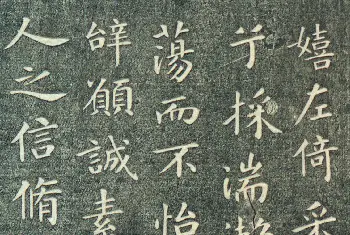 嬉左倚采
兮採湍
蕩而不怡
辭願誠素
人之信脩